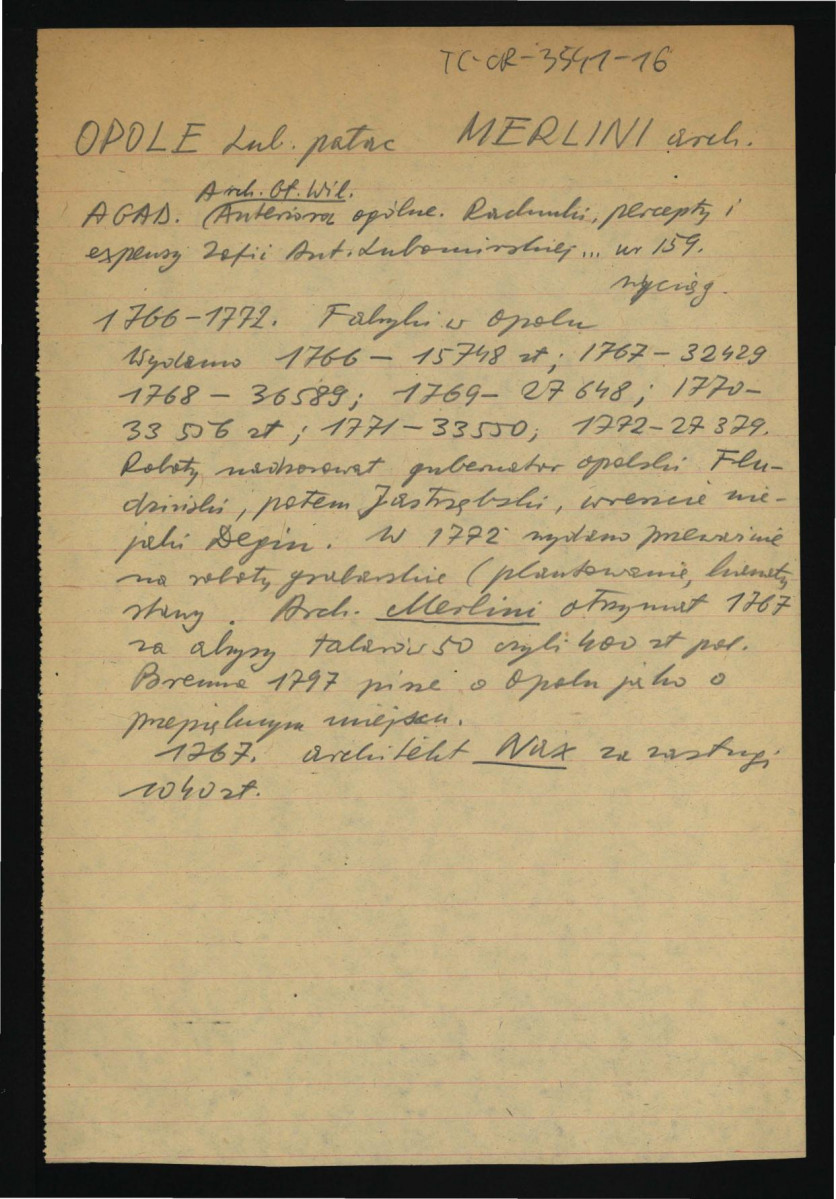 TC-OR-3541-16
OPOLE Lub. pałac MERLINI arch.
Arch. Gł. Wil.
AGAD. (Anteriora ogólne. Rachunki, percepty i
expensy Zofii Ant. Lubomirskiej... nr 159.
wyciąg.
1766-1772. Fabryki w Opolu
Wydano 1766 - 15748 zł; 1767 - 32429
1768 - 36589; 1769 - 27 648; 1770 -
33 556 zł; 1771 - 33550; 1772 - 27 379.
Roboty nadzorował gubernator opolski Flu-
dziński, potem Jastrzębski, wreszcie nie-
jaki Degin. W 1772 wydano przeważnie
na roboty grabarskie (plantowanie, kwatery
stawy. Arch. Merlini otrzymał 1767
za abrysy talarów 50 czyli 400 zł pol.
Brenna 1797 pisze o Opolu jako o
przepięknym miejscu.
1767. architekt Nax za zasługi
1040 zł.